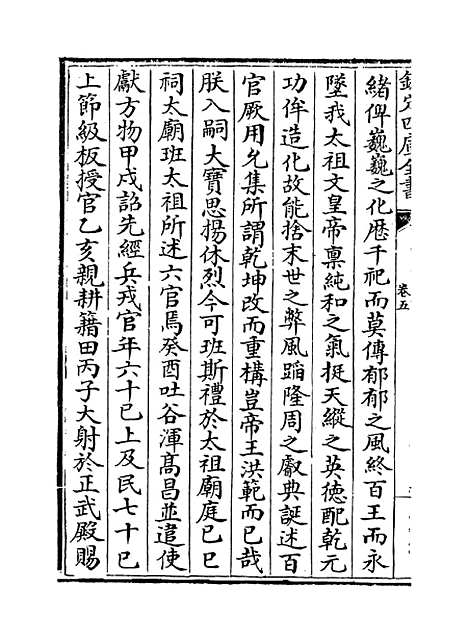 欽定四庫全書
卷五
緒俾巍巍之化厯千祀而莫傳郁郁之風終百王而永
墜我太祖文皇帝禀純和之氣挺天縱之英德配乾元
功侔造化故能捨末世之弊風蹈隆周之叡典誕述百
官厥用允集所謂乾坤改而重構豈帝王洪範而已哉
朕入嗣大寶思揚休烈今可班斯禮於太祖廟庭己巳
祠太廟班太祖所述六官焉癸酉吐谷渾髙昌並遣使
獻方物甲戌詔先經兵戎官年六十已上及民七十已
上節級板授官乙亥親耕籍田丙子大射於正武殿賜